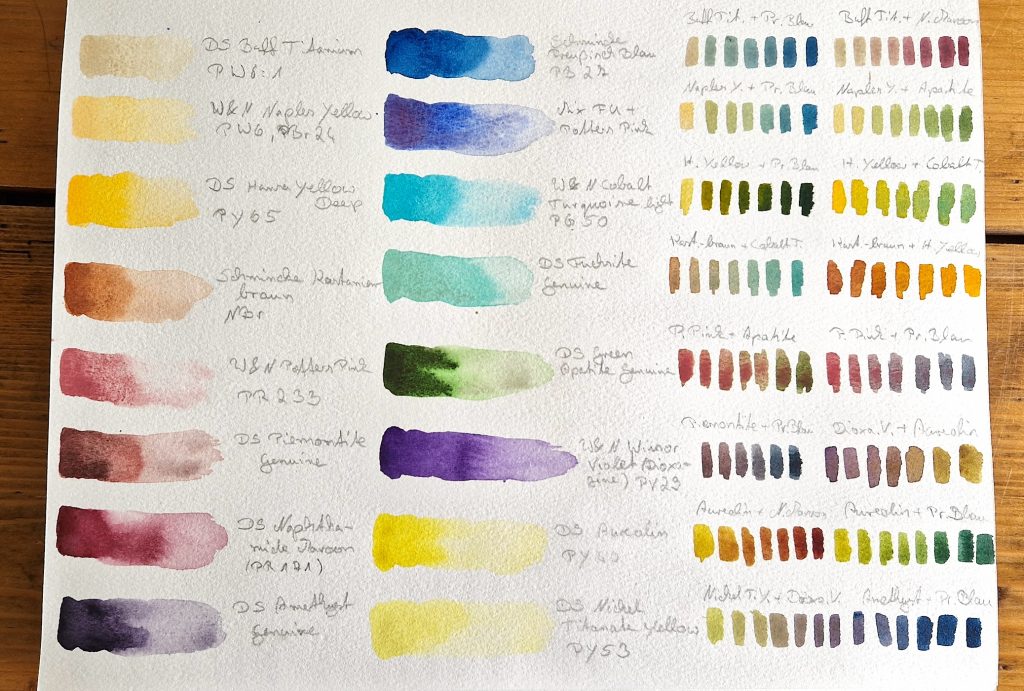 DS Buff Titanium
PW6:1
W&N Naples Yellow
PW6, PBr24
DS Hansa Yellow
Deep
PY65
Schmincke
braun
NBr
W&N Potters Pink
PR233
DS Piemontite
Genuine
DS Naphtha-
mide Maroon
(PR171)
DS Amethyst
Genuine
Schmincke
Blau
PB27
Mix FU +
Potters Pink
W&N Cobalt
Turquoise light
PG50
DS Fuchsite
Genuine
DS Green
Apatite Genuine
W&N Winsor
Violet (Dioxa-
zine) PV23
DS Aureolin
PY40
DS Nickel
Titanate Yellow
PY53
Buff Tit. + Pr. Blau
Buff Tit. + N. Maroon
Naples Y. + Pr. Blau
Naples Y. + Apatite
H. Yellow + Pr. Blau
H. Yellow + Cobalt T.
Kast.-braun + Cobalt T.
Kast.-braun + H. Yellow
P. Pink + Apatite
P. Pink + Pr. Blau
Piemontite + Pr. Blau
Dioxa. V. + Aureolin
Aureolin + N. Maroon
Aureolin + Pr. Blau
Nickel T. Y. + Dioxa. V.
Amethyst + Pr. Blau